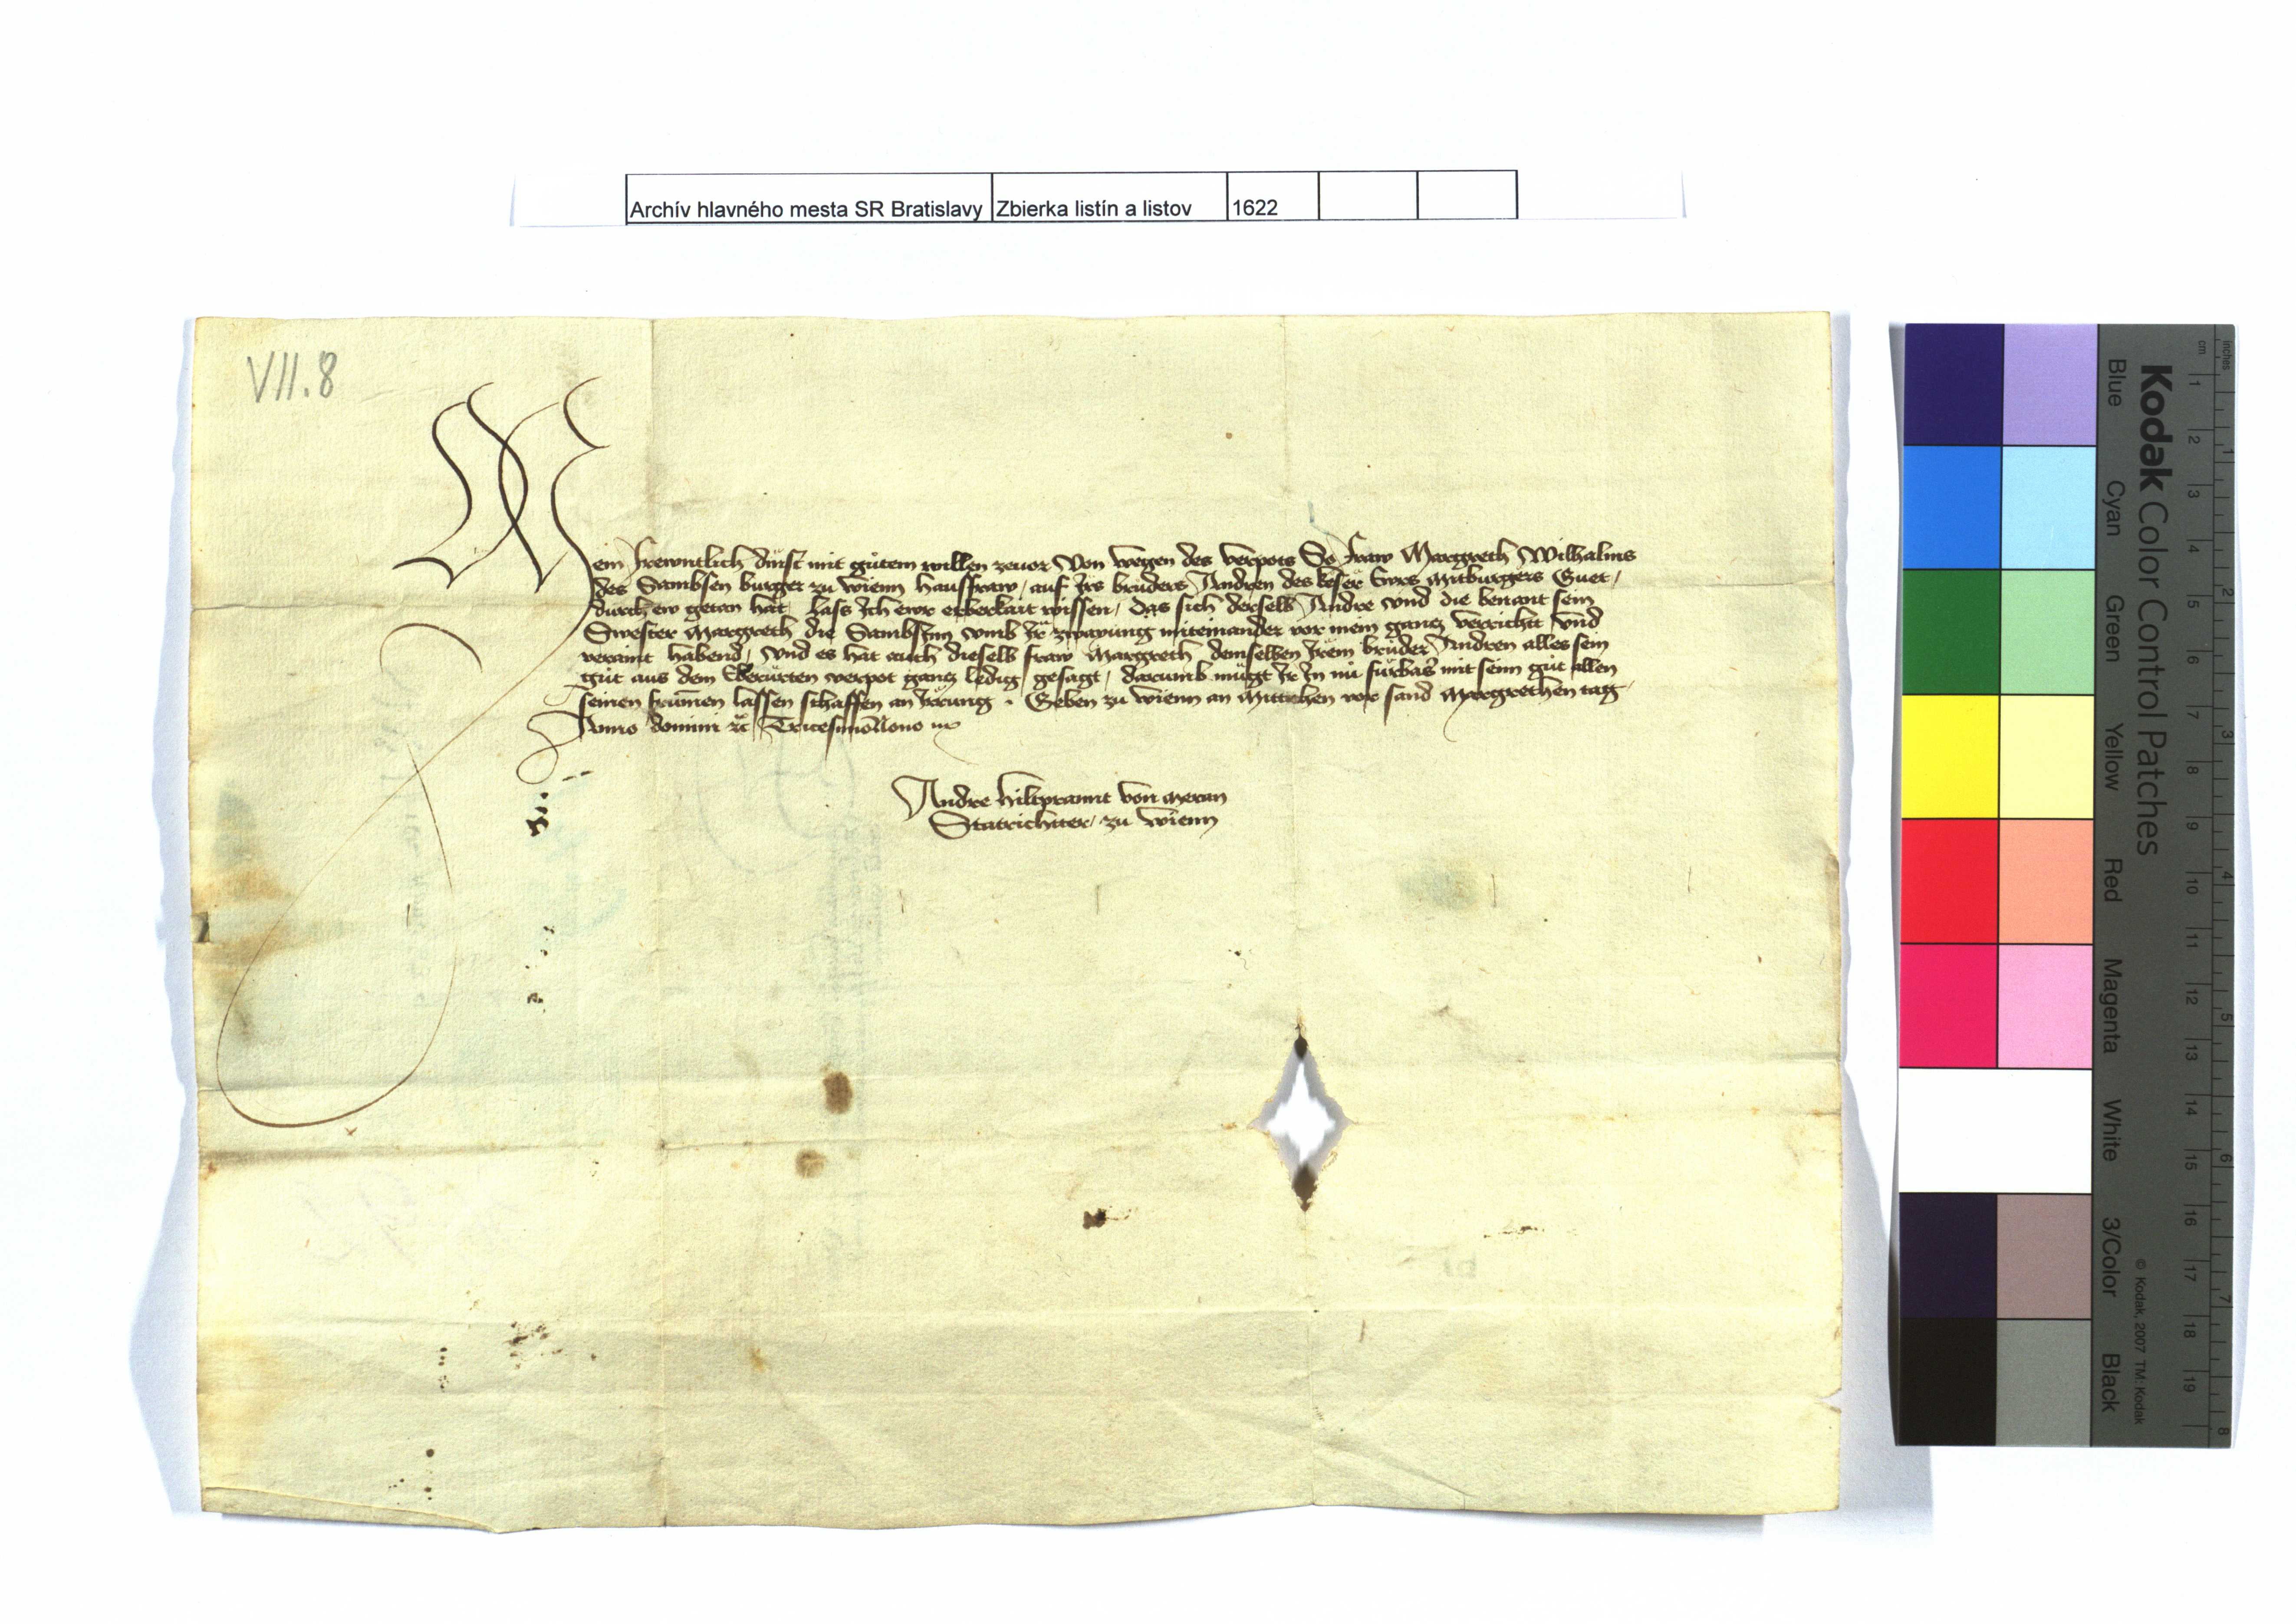 Archív hlavného mesta SR Bratislavy Zbierka listín a listov 1622
VII.8
Mein frewntlich dinst mit gůtem willen zeuor Von wegen des verpots So fraw Margreth Wilhalms
des Sambsen burger zu wienn hausfraw, auf Irs bruders Andren des keser Ewrs mitburgers Guet,
durch ew getan hat, lass Ich ewr erberkait wissen, das sich derselb Andre vnd die benant sein
Swester Margreth die Sambsinn vmb Ir zwayung miteinander vor mein gancz verricht vnd
veraint habend, vnd es hat auch dieselb fraw Margreth demselben Irem brůder Andren alles sein
gůt aus dem Eberürten verpot gancz ledig gesagt, darumb mügt Ir In nů fürbas mit seim gůt allen
seinen frůmen lassen schaffen an Irrung. Geben zu wienn an Mittichen vor sand Margrethen tag,
Anno domini etc Tricesimonono
Andre hiltprannt von meran
Statrichtter, zu wienn
Kodak Color Control Patches
Blue Cyan Green Yellow Red Magenta White 3/Color Black
© Kodak, 2007 TM: Kodak
inches 1 2 3 4 5 6 7 8
cm 1 2 3 4 5 6 7 8 9 10 11 12 13 14 15 16 17 18 19